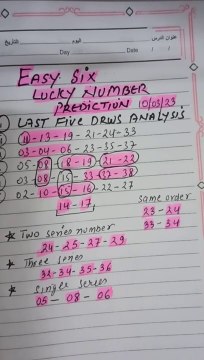 التاريخ
اليوم
عنوان الدرس
Day
Date
EASY SIX
LUCKY NUMBER
PREDICTION 10/03/23
LAST FIVE DRWS ANALYSIS
11-13-19-21-24-33
03-04-06-23-35-37
05-08-18-19-21-22
03-08-15-33-37-38
02-10-15-16-22-27
14-17
Same order
23-24
33-34
* Two series number
24-25-27-29
* Three series
32-34-35-36
* Single series
05-08-06